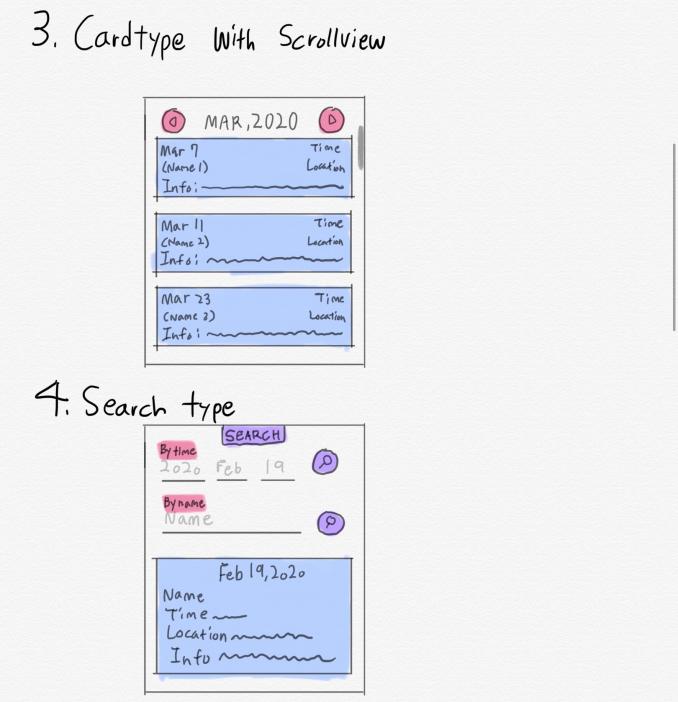 3. Cardtype With Scrollview
MAR,2020
Mar 7 Time
(Name 1) Location
Info:
Mar 11 Time
(Name 2) Location
Info:
Mar 23 Time
(Name 3) Location
Info:
4. Search type
SEARCH
By time
2020 Feb 19
By name
Name
Feb 19,2020
Name
Time
Location
Info